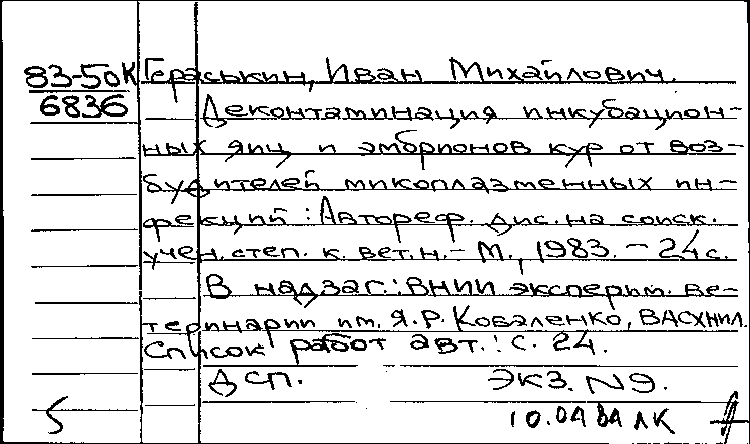 83-50К Гераськин, Иван Михайлович.
6836 Деконтаминация инкубацион-
ных яиц и эмбрионов кур от воз-
будителей микоплазменных ин-
фекций : Автореф. дис. на соиск.
учен. степ. к. вет. н. - М., 1983. - 24 с.
В надзаг.: ВНИИ эксперим. ве-
теринарии им. Я.Р. Коваленко, ВАСХНИЛ.
Список работ авт.: с. 24.
ДСП. ЭКЗ. N9.
10.04